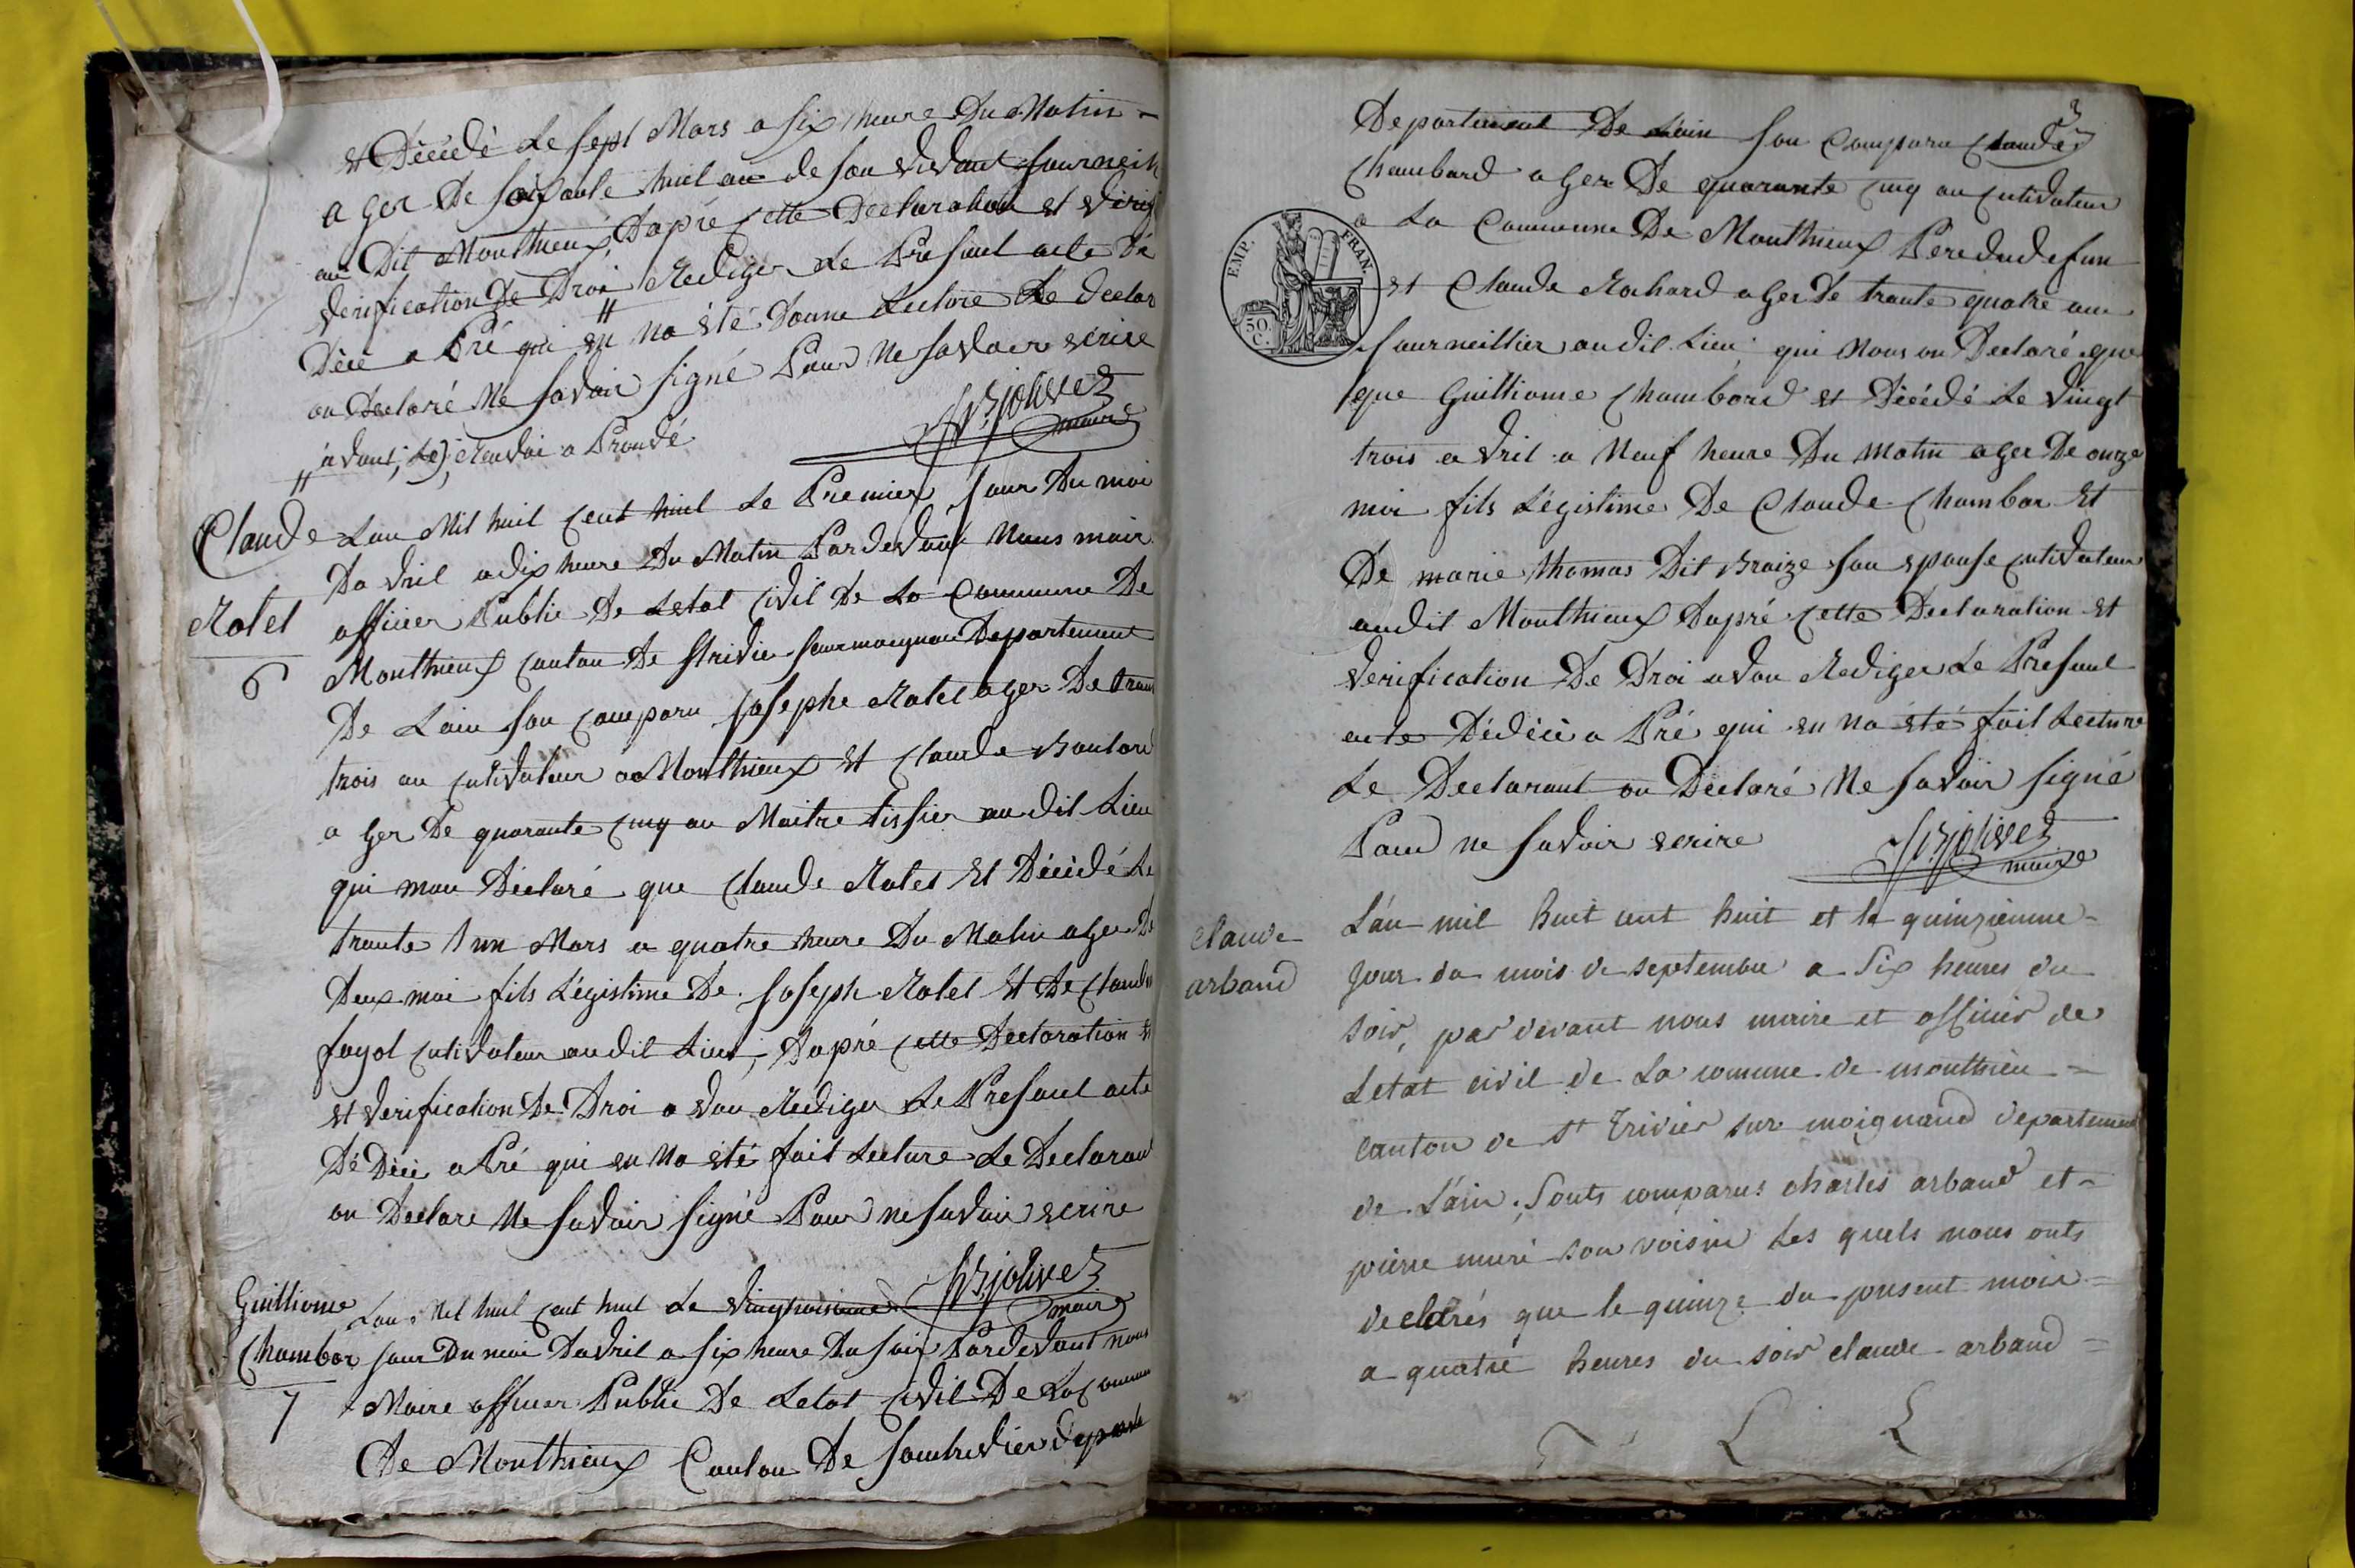 est Décédé Le sept Mars a six heure Du Matin =
a ger De soisante huit an de son vivant journeil
au Dit Monthieux, Dapré cette Declaration et
verification De Droi Rediger Le Presant acte Dé
Déce a Pré qui en na été Donne Lecture Le declar
on Declaré Ne savoir signé Pour Ne savoir ecrire
avant, Le) Renvoi a Prouvé
JB jolivet
maire
Claude
Ratel
6
Lan Mil huit cent huit Le Premier jour Du moi
Davril a dix heure Du Matin Pardevant Nous mair
officier Public De Letat civil De La Commune De
Monthieux canton De strivie surmoignan Departement
De Lain son comparu josephe Ratel ager De trant
trois an cutivateur a Monthieux et claude
a ger De quarante cinq an Maitre tissier au dit Lieu
qui mon Déclaré que claude Ratel Et Décédé Le
trante 1 un Mars a quatre heure Du Matin ager De
Deux moi fils Légistime De joseph Ratel Et De claud
fayol cutivateur audit Lieu, Dapré cette Declaration et
et verification De Droi avon Rediger Le Presant acte
Dé Déce a Pré qui en na eté fait Lecture Le Declarant
on Declare Ne savoir signé Pour ne savoir ecrire
JB jolivet
maire
Guilliome
Chambar
7
Lan Mil huit cent huit Le vingtroisieme
jour Du moi Davril a six heure Du soir Pardevant nous
Maire officier Public De Letat civil De La commun
De Monthieux Canton De saintrivier
3
Departement De Lain son Comparu Claude
Chambard a ger De quarante cinq an cutivateur
a La Commune De Monthieux Pere dudefun
EMP. FRAN.
50 C.
et Claude Rochard ager De trante quatre an
journeillier audit Lieu qui Nous on Declaré que
que Guilliome Chambard et Décédé Le vingt
trois avril a Neuf heure Du matin ager De onze
moi fils Légistime De Claude Chambar Et
De marie thomas Dit Braize son epouse cutivateur
audit Monthieux Dapré cette Declaration Et
verification De Droi avon Rediger Le Presant
acte Dédécè a Pré qui en na été fait Lecture
Le Declarant on Déclaré Ne savoir signé
Pour ne savoir ecrire
JB jolivet
maire
claude
arband
L'an mil huit cent huit et le quinzieme =
jour du mois de septembre a six heures du
soir, par devant nous maire et officier de
Letat civil de La comune de monthieu =
canton de St trivier sur moignand departement
de L'ain. Sonts comparus charles arband et =
pierre muri son voisin Les quels nous onts
declarés que le quinze du present mois =
a quatre heures du soir claude arband =